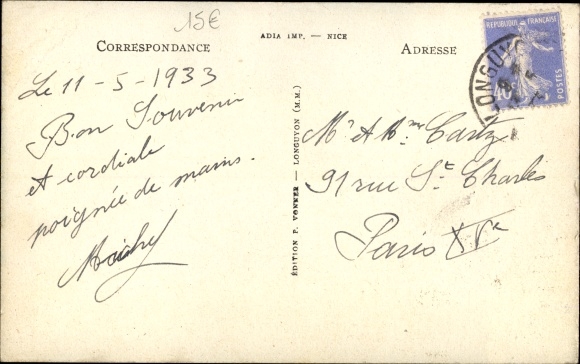 15€
ADIA IMP. — NICE
CORRESPONDANCE
ADRESSE
REPUBLIQUE FRANÇAISE
POSTES
LONGUYON
Le 11-5-1933
Bon Souvenir
et cordiale
poignée de mains.
ÉDITION P. VONNER — LONGUYON (M.M.)
Mr et Mme
91 rue St Charles
Paris XVe